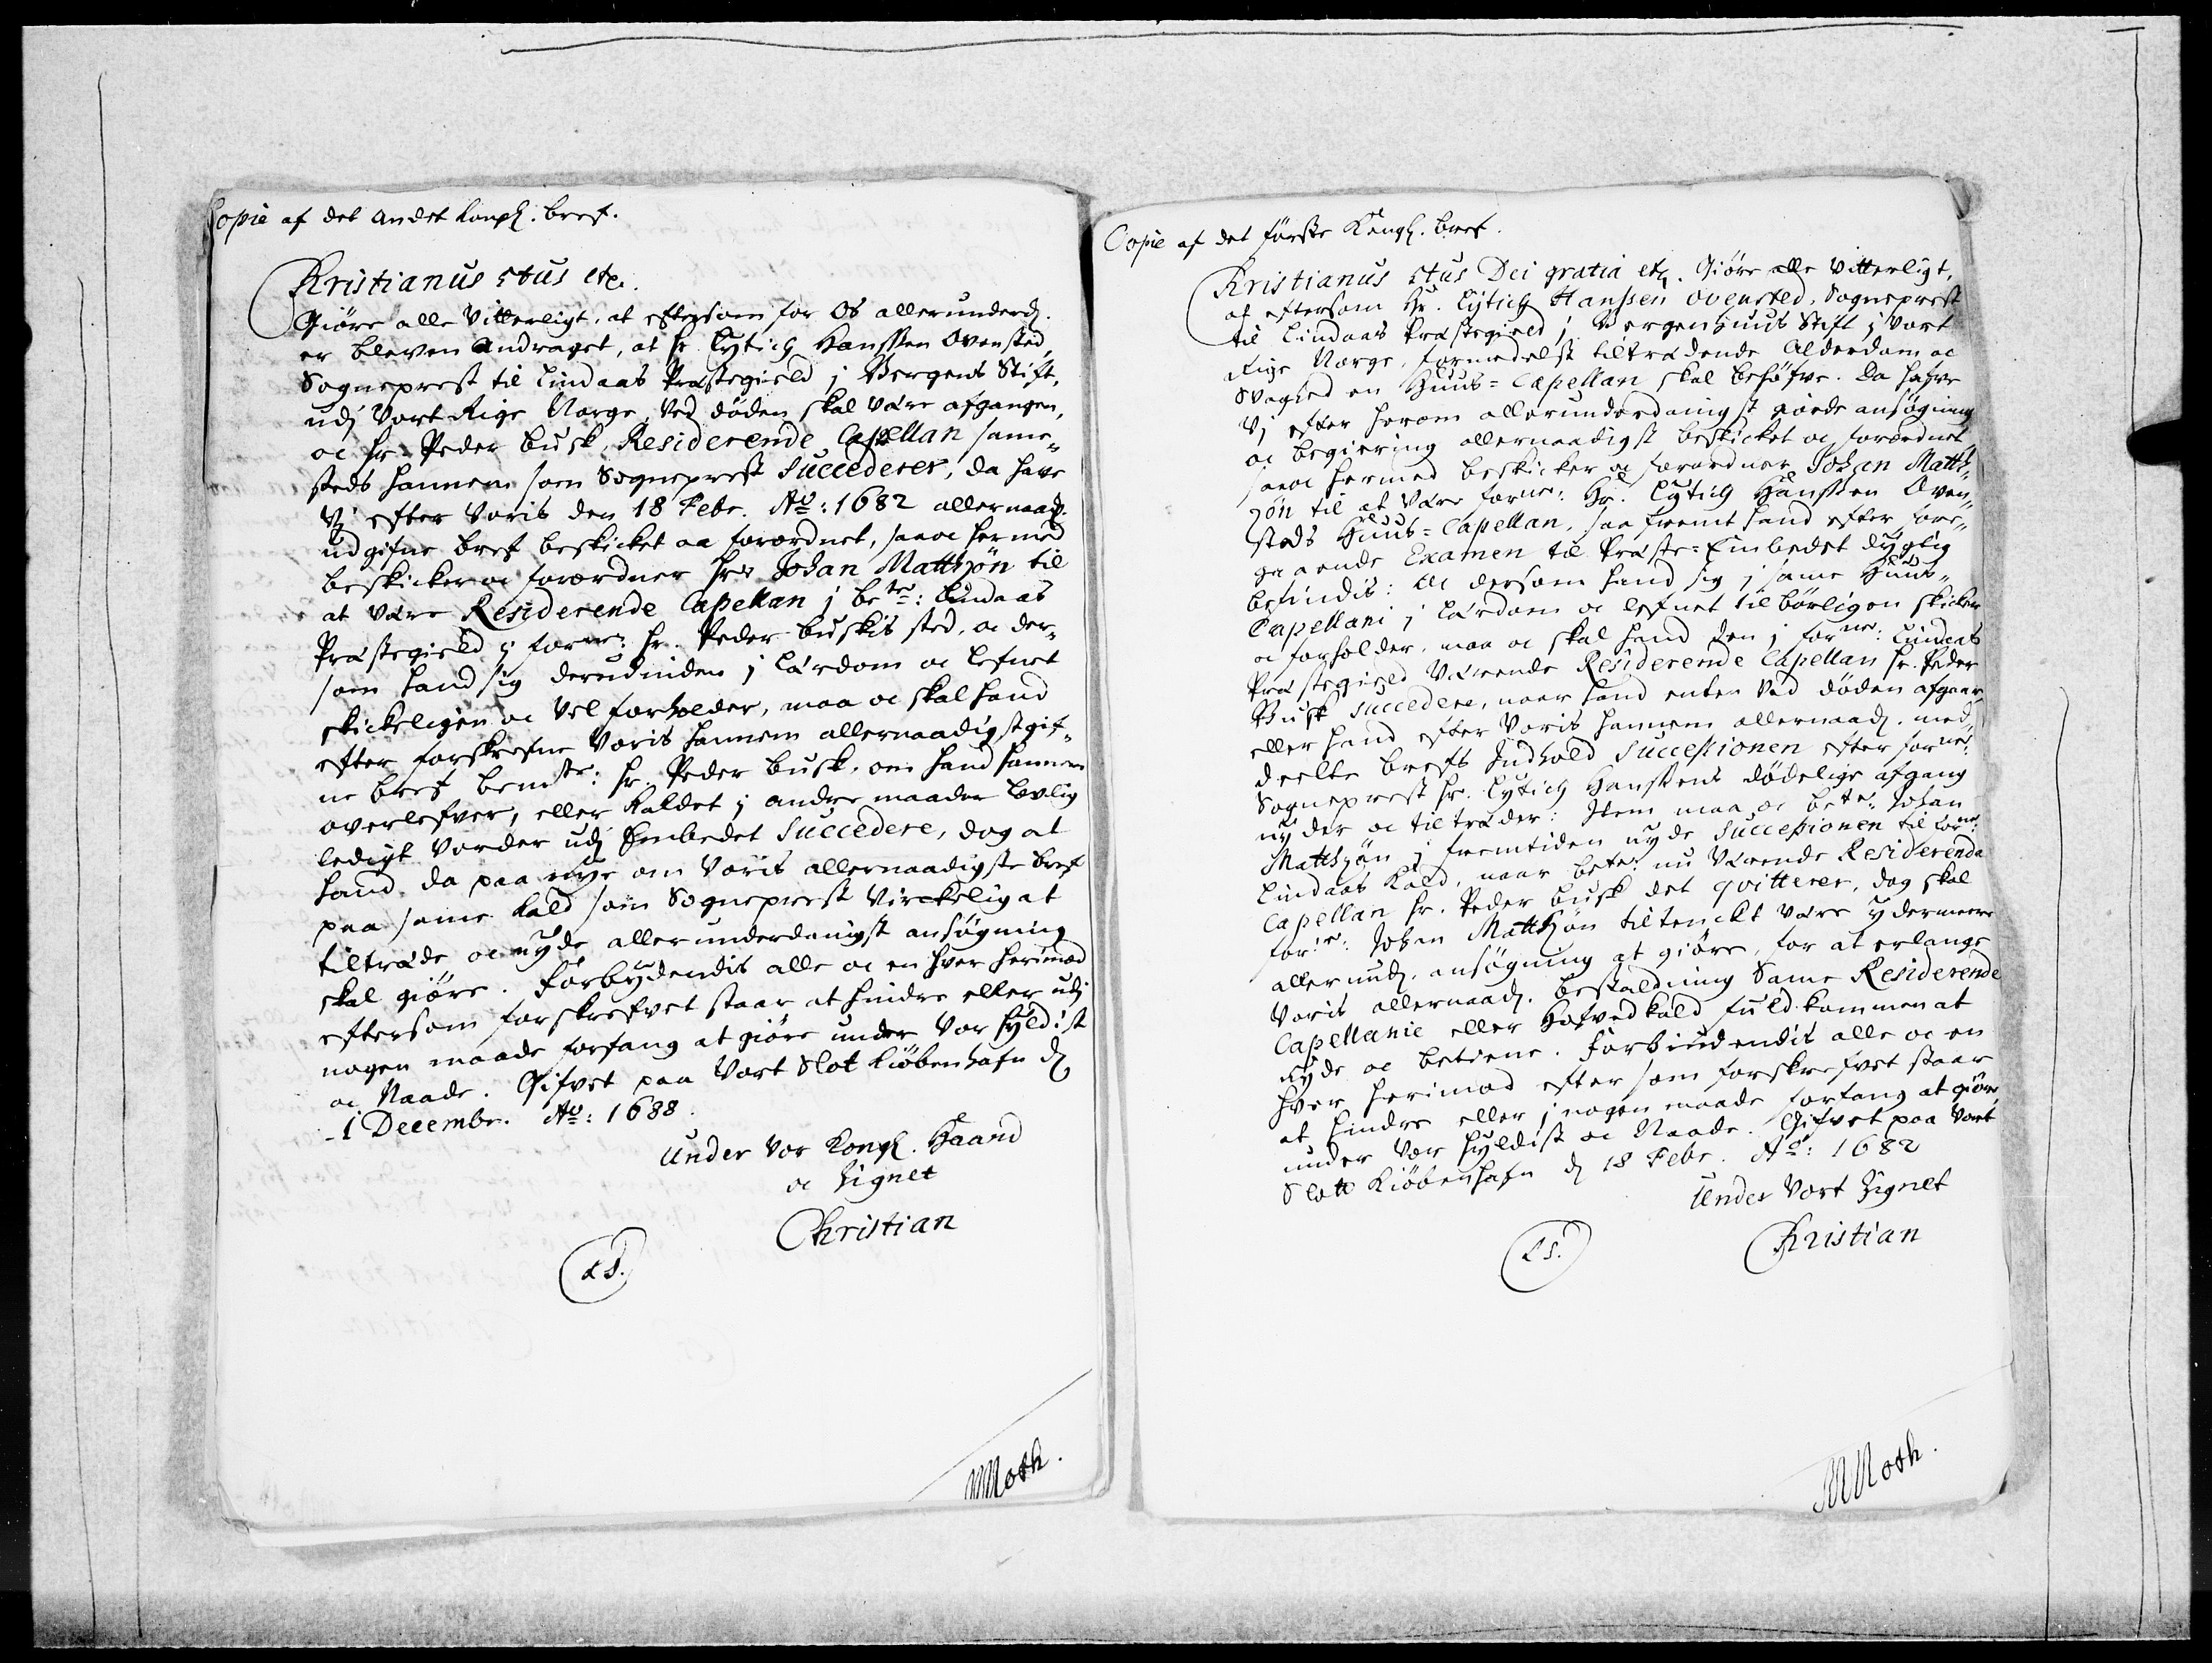 Copie af det andet Kongl. bref.
Christianus 5tus etc.
Giöre alle Vitterligt, at eftersom for Os allerunderd.
er bleven andraget, at hr. Lytich Hanssen Ovensted,
Sogneprest til Lindaas Præstegield j Bergens Stift,
udj Vort Rige Norge, Ved döden skal være afgangen,
oc hr. Peder Busk, Residerende Capellan same„
steds hannem som Sogneprest Succederer, da have
Vj efter Voris den 18 Febr. Ao: 1682 allernaad.
udgifne bref beskicket oc forordnet, saa oc hermed
beskicker oc forordner Hr. Johan Matthjön til
at være Residerende Capellan j bete: Lindaas
Præstegield j forne: hr. Peder Buskis sted, oc der„
som hand sig derudinden j Lærdom oc Lefnet
skickeligen oc Vel forholder, maa oc skal hand
efter forskrefne Voris hannem allernaadigst gif„
ne bref bemte: hr. Peder Busk, om hand hannem
overlefver, eller Kaldet j andre maader lovlig
ledigt Vorder udj Embedet Succedere, dog at
hand da paa nye om Voris allernaadigste bref
paa same Kald som Sogneprest Virckelig at
tiltræde oc nyde allerunderdanigst ansögning
skal giöre. Forbydendis alle oc en hver herimod
eftersom forskrefvet staar at hindre eller udj
nogen maade forfang at giöre under Vor Hyldist
oc Naade. Gifvet paa Vort Slot Kiöbenhafn d.
1 Decembr. Ao: 1688.
Under Vor Kongl. Haand
oc Zignet
Christian
LS.
MMoth.
Copie af det förste Kongl. bref.
Christianus 5tus Dei gratia etc. Giöre alle Vitterligt,
at eftersom Hr. Lytich Hanssen Ovensted, Sogneprest
til Lindaas Præstegield j Bergenhuus Stift j Vort
Rige Norge, formedelst tiltrædende Alderdom oc
Svaghed en Huus=Capellan skal behöfve. Da hafve
Vj efter herom allerunderdanigst giorde ansögning
oc begiering allernaadigst beskicket oc forordnet
saa oc hermed beskicker oc forordner Johan Matth„
jön til at være forne: Hr. Lytich Hanssen Oven„
steds Huus=Capellan, saafremt hand efter fore„
gaaende Examen til Præste=Embedet dygtig
befindis: Oc dersom hand sig j same Huus„
Capellani j Lærdom oc lefnet tilbörligen skicker
oc forholder, maa oc skal hand den j forne: Lindaas
Præstegield Værende Residerende Capellan hr. Peder
Busk succedere, naar hand enten Ved döden afgaar,
eller hand efter Voris hannem allernaad. med„
deelte brefs Indhold Successionen efter forne:
Sogneprest hr. Lytich Hanssens dödelige afgang
nyder oc tiltræder: Item maa oc bete: Johan
Matthjön j fremtiden nyde Successionen til forne:
Lindaas Kald, naar bete: nu Værende Residerende
Capellan hr. Peder Busk det qvitterer, dog skal
forne: Johan Matthjön tiltenckt være ydermeere
allerund. ansögning at giöre, for at erlange
Voris allernaad. bestaldning Same Residerende
Capellanie eller Hofvedkald fuldkommen at
nyde oc betiene. Forbiudendis alle oc en
hver herimod eftersom forskrefvet staar
at hindre eller j nogen maade forfang at giöre,
under Vor Hyldist oc Naade. Gifvet paa Vort
Slott Kiöbenhafn d. 18 Febr. Ao: 1682
Under Vort Zignet
Christian
LS.
MMoth.